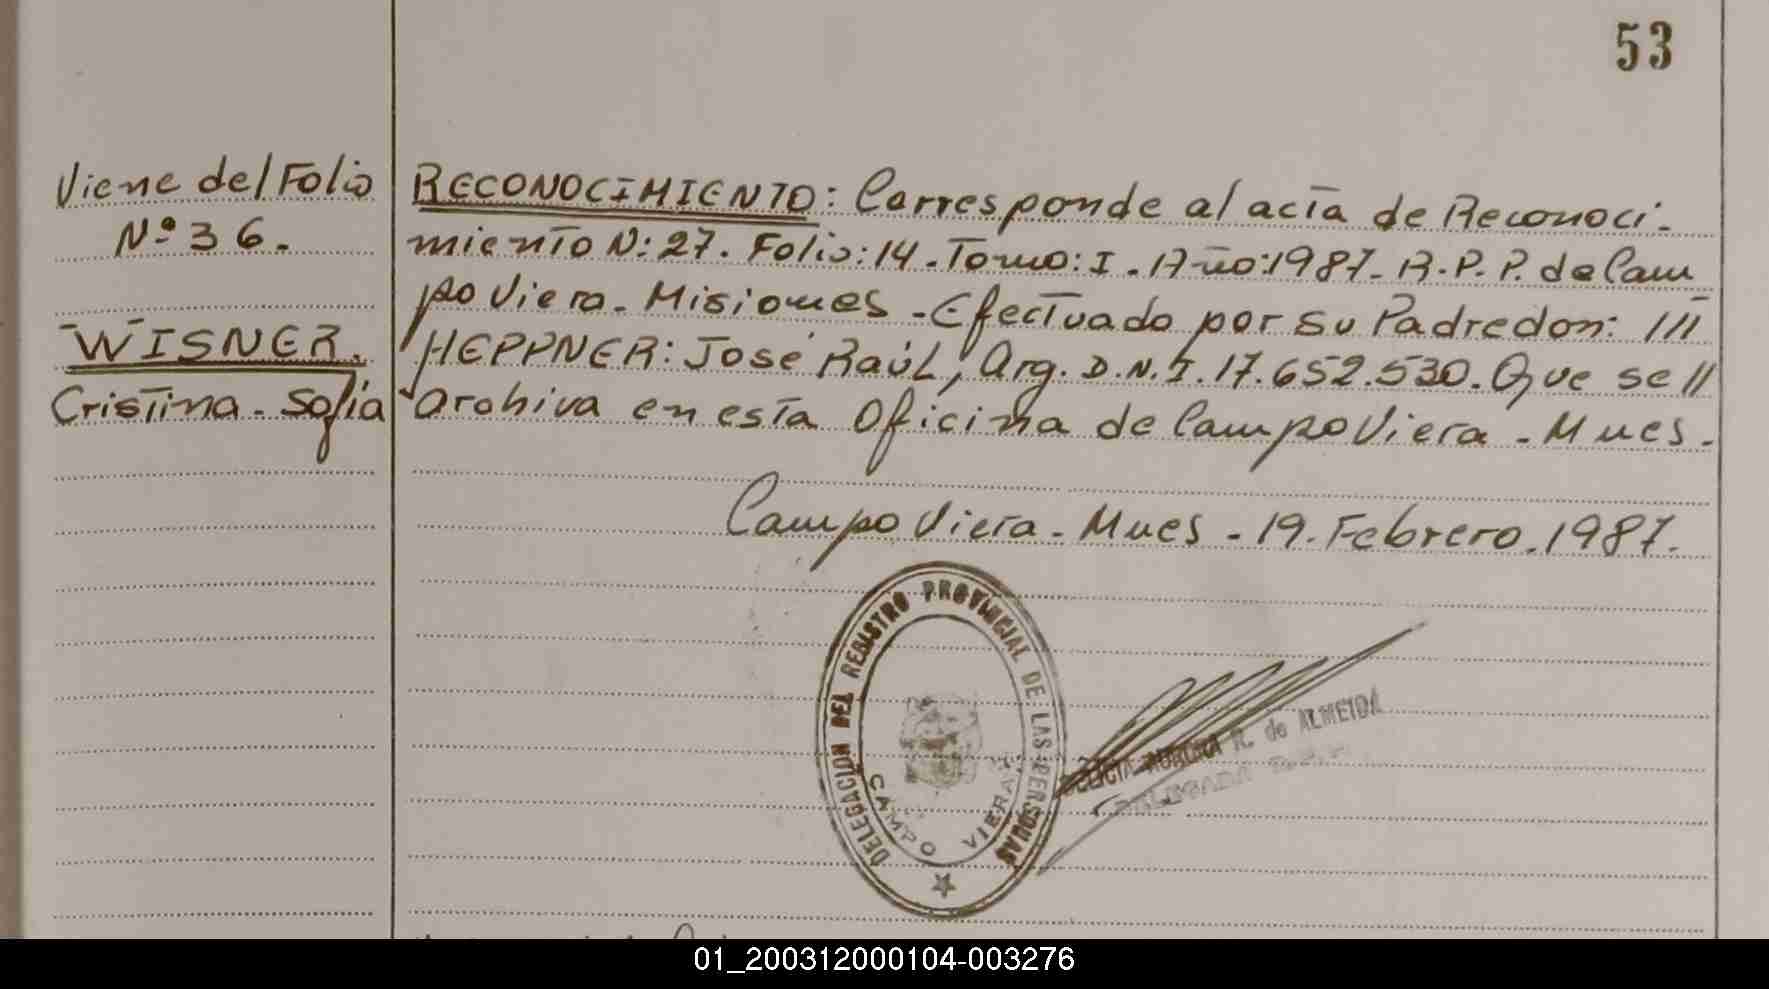 53
Viene del Folio
Nº 36.
WISNER.
Cristina - Sofía
RECONOCIMIENTO: Corresponde al acta de Reconoci-
miento N: 27. Folio: 14 - Tomo: I - Año: 1987 - R.P.P. de Cam
po Viera - Misiones - Efectuado por su Padre don: ///
HEPPNER: José Raúl, Arg. D.N.I. 17.652.530. Que se //
archiva en esta Oficina de Campo Viera - Mnes.
Campo Viera - Mnes - 19. Febrero. 1987.
DELEGACION DEL REGISTRO PROVINCIAL DE LAS PERSONAS
CAMPO VIERA
AURORA R. de ALMEIDA
DELEGADA
01_200312000104-003276